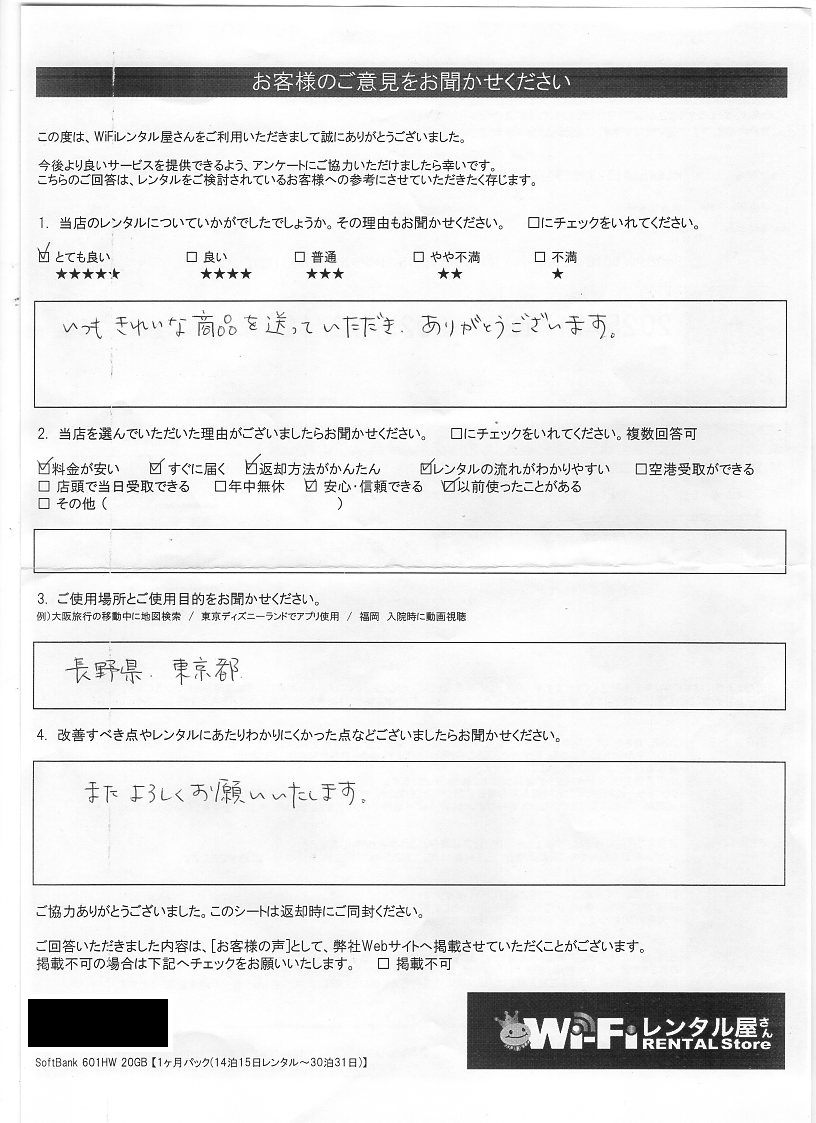 お客様のご意見をお聞かせください
この度は、WiFiレンタル屋さんをご利用いただきまして誠にありがとうございました。
今後より良いサービスを提供できるよう、アンケートにご協力いただけましたら幸いです。
こちらのご回答は、レンタルをご検討されているお客様への参考にさせていただきたく存じます。
1. 当店のレンタルについていかがでしたでしょうか。その理由もお聞かせください。 □にチェックをいれてください。
☑ とても良い □ 良い □ 普通 □ やや不満 □ 不満
★★★★★ ★★★★ ★★★ ★★ ★
いつも きれいな商品を送っていただき、ありがとうございます。
2. 当店を選んでいただいた理由がございましたらお聞かせください。 □にチェックをいれてください。複数回答可
☑料金が安い ☑ すぐに届く ☑返却方法がかんたん ☑レンタルの流れがわかりやすい □空港受取ができる
□ 店頭で当日受取できる □年中無休 ☑ 安心・信頼できる ☑以前使ったことがある
□ その他 ( )
3. ご使用場所とご使用目的をお聞かせください。
例)大阪旅行の移動中に地図検索 / 東京ディズニーランドでアプリ使用 / 福岡 入院時に動画視聴
長野県、東京都
4. 改善すべき点やレンタルにあたりわかりにくかった点などございましたらお聞かせください。
また よろしくお願いいたします。
ご協力ありがとうございました。このシートは返却時にご同封ください。
ご回答いただきました内容は、[お客様の声]として、弊社Webサイトへ掲載させていただくことがございます。
掲載不可の場合は下記へチェックをお願いいたします。 □ 掲載不可
Wi-Fiレンタル屋さん
RENTAL Store
SoftBank 601HW 20GB【1ヶ月パック(14泊15日レンタル～30泊31日)】